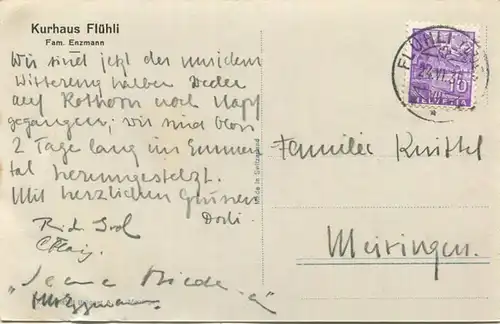 Kurhaus Flühli
Fam. Enzmann
Wir sind jetzt der
Witterung halber weder
auf Rothorn noch Napf
gegangen, wir sind bloss
2 Tage lang im Emmen-
tal herumgestelzt.
Mit herzlichen Grüssen
Dorli.
Made in Switzerland
FLÜHLI
22.VI.36
10
HELVETIA
Familie Knittel
Meiringen.